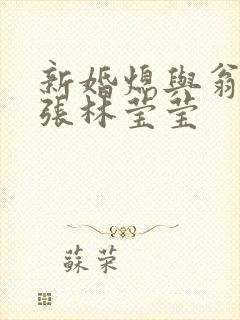 新婚熄與翁
張林莹莹
蘇荣